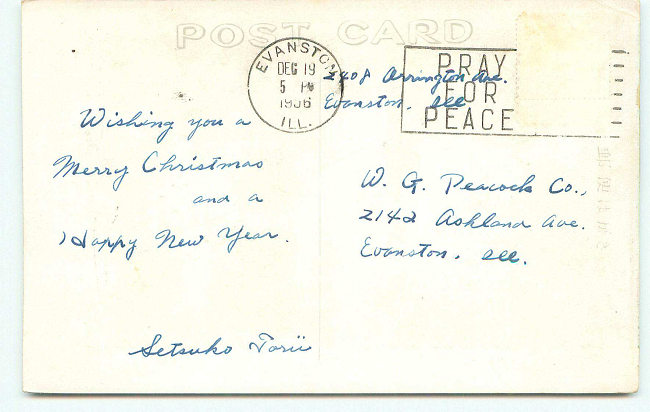 POST CARD
EVANSTON
DEC 19
5 PM
1956
ILL.
PRAY
FOR
PEACE
2408 Orrington Ave.
Evanston, Ill
Wishing you a
Merry Christmas
and a
Happy New Year.
Setsuko Torii
W. G. Peacock Co.,
2142 Ashland Ave.
Evanston, Ill.